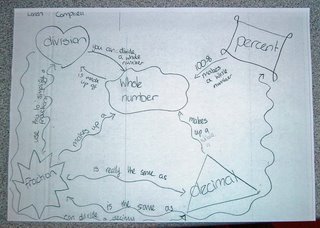 division
percent
you can divide
a whole
number
100%
makes
a
number
is
made
up of
Whole
number
makes up a
makes
up a
fraction
is really the same as
decimal
is the same as
can divide a